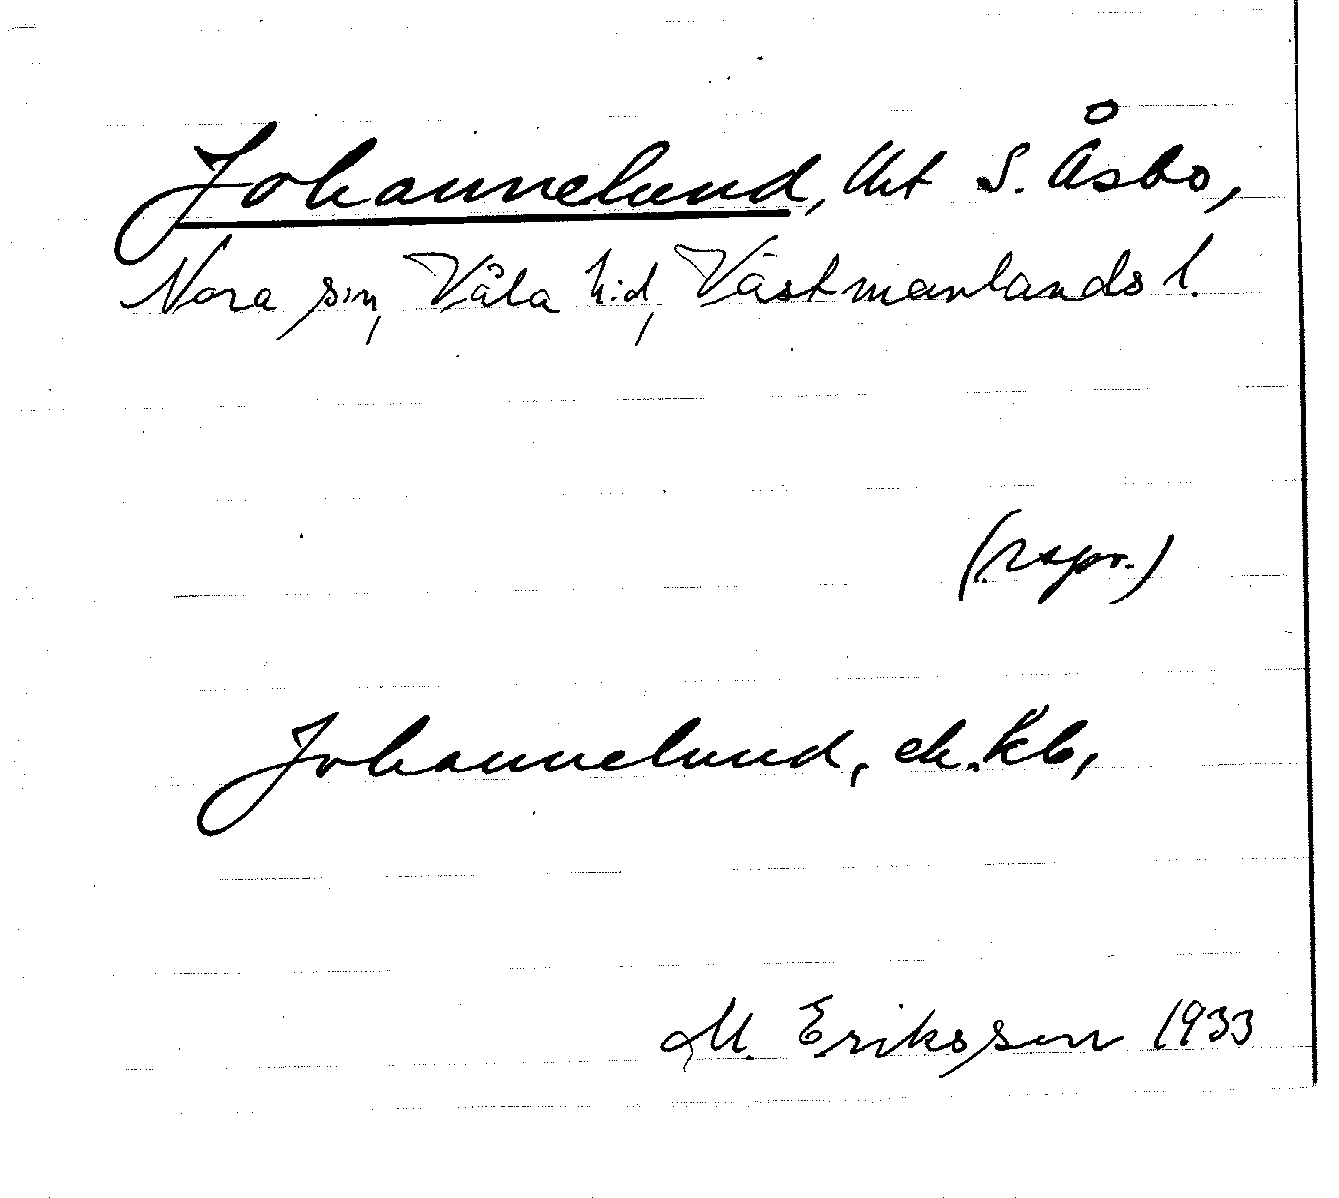 Johannelund, Uht S. Åsbo,
Nora sn, Våla h:d, Västmanlands l.
(rspr.)
Johannelund, ek.kb,
M. Eriksson 1933